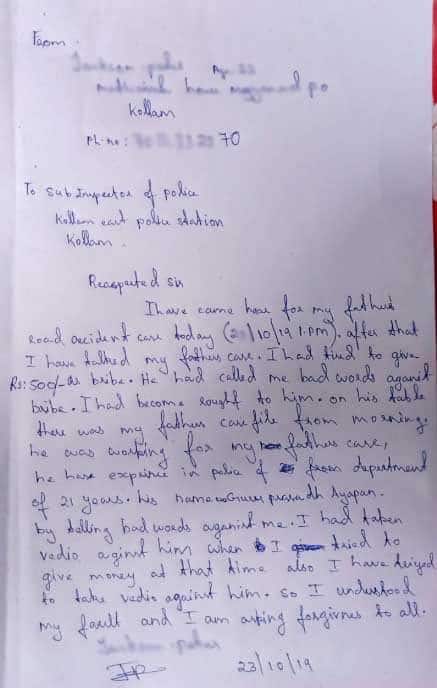 From
Kollam
Ph.no: 70
To Sub Inspector of police
Kollam east police station
Kollam.
Reaspected sir
I have came hear for my father's
road accident case today ( /10/19 1.pm). after that
I have talked my fathers case. I had tired to give
Rs: 500/- as bribe. He had called me bad words against
bribe. I had become rought to him. on his table
there was my fathers case file from morning.
he was working for my fathers case,
he have exprince in police of from department
of 21 years. his name is Guru prasadh Ayapan.
by telling bad words aganist me. I had taken
vedio aginst him when I tried to
give money at that time also I have teiyed
to take vedio against him. so I understood
my fault and I am asking forgivnes to all.
23/10/19